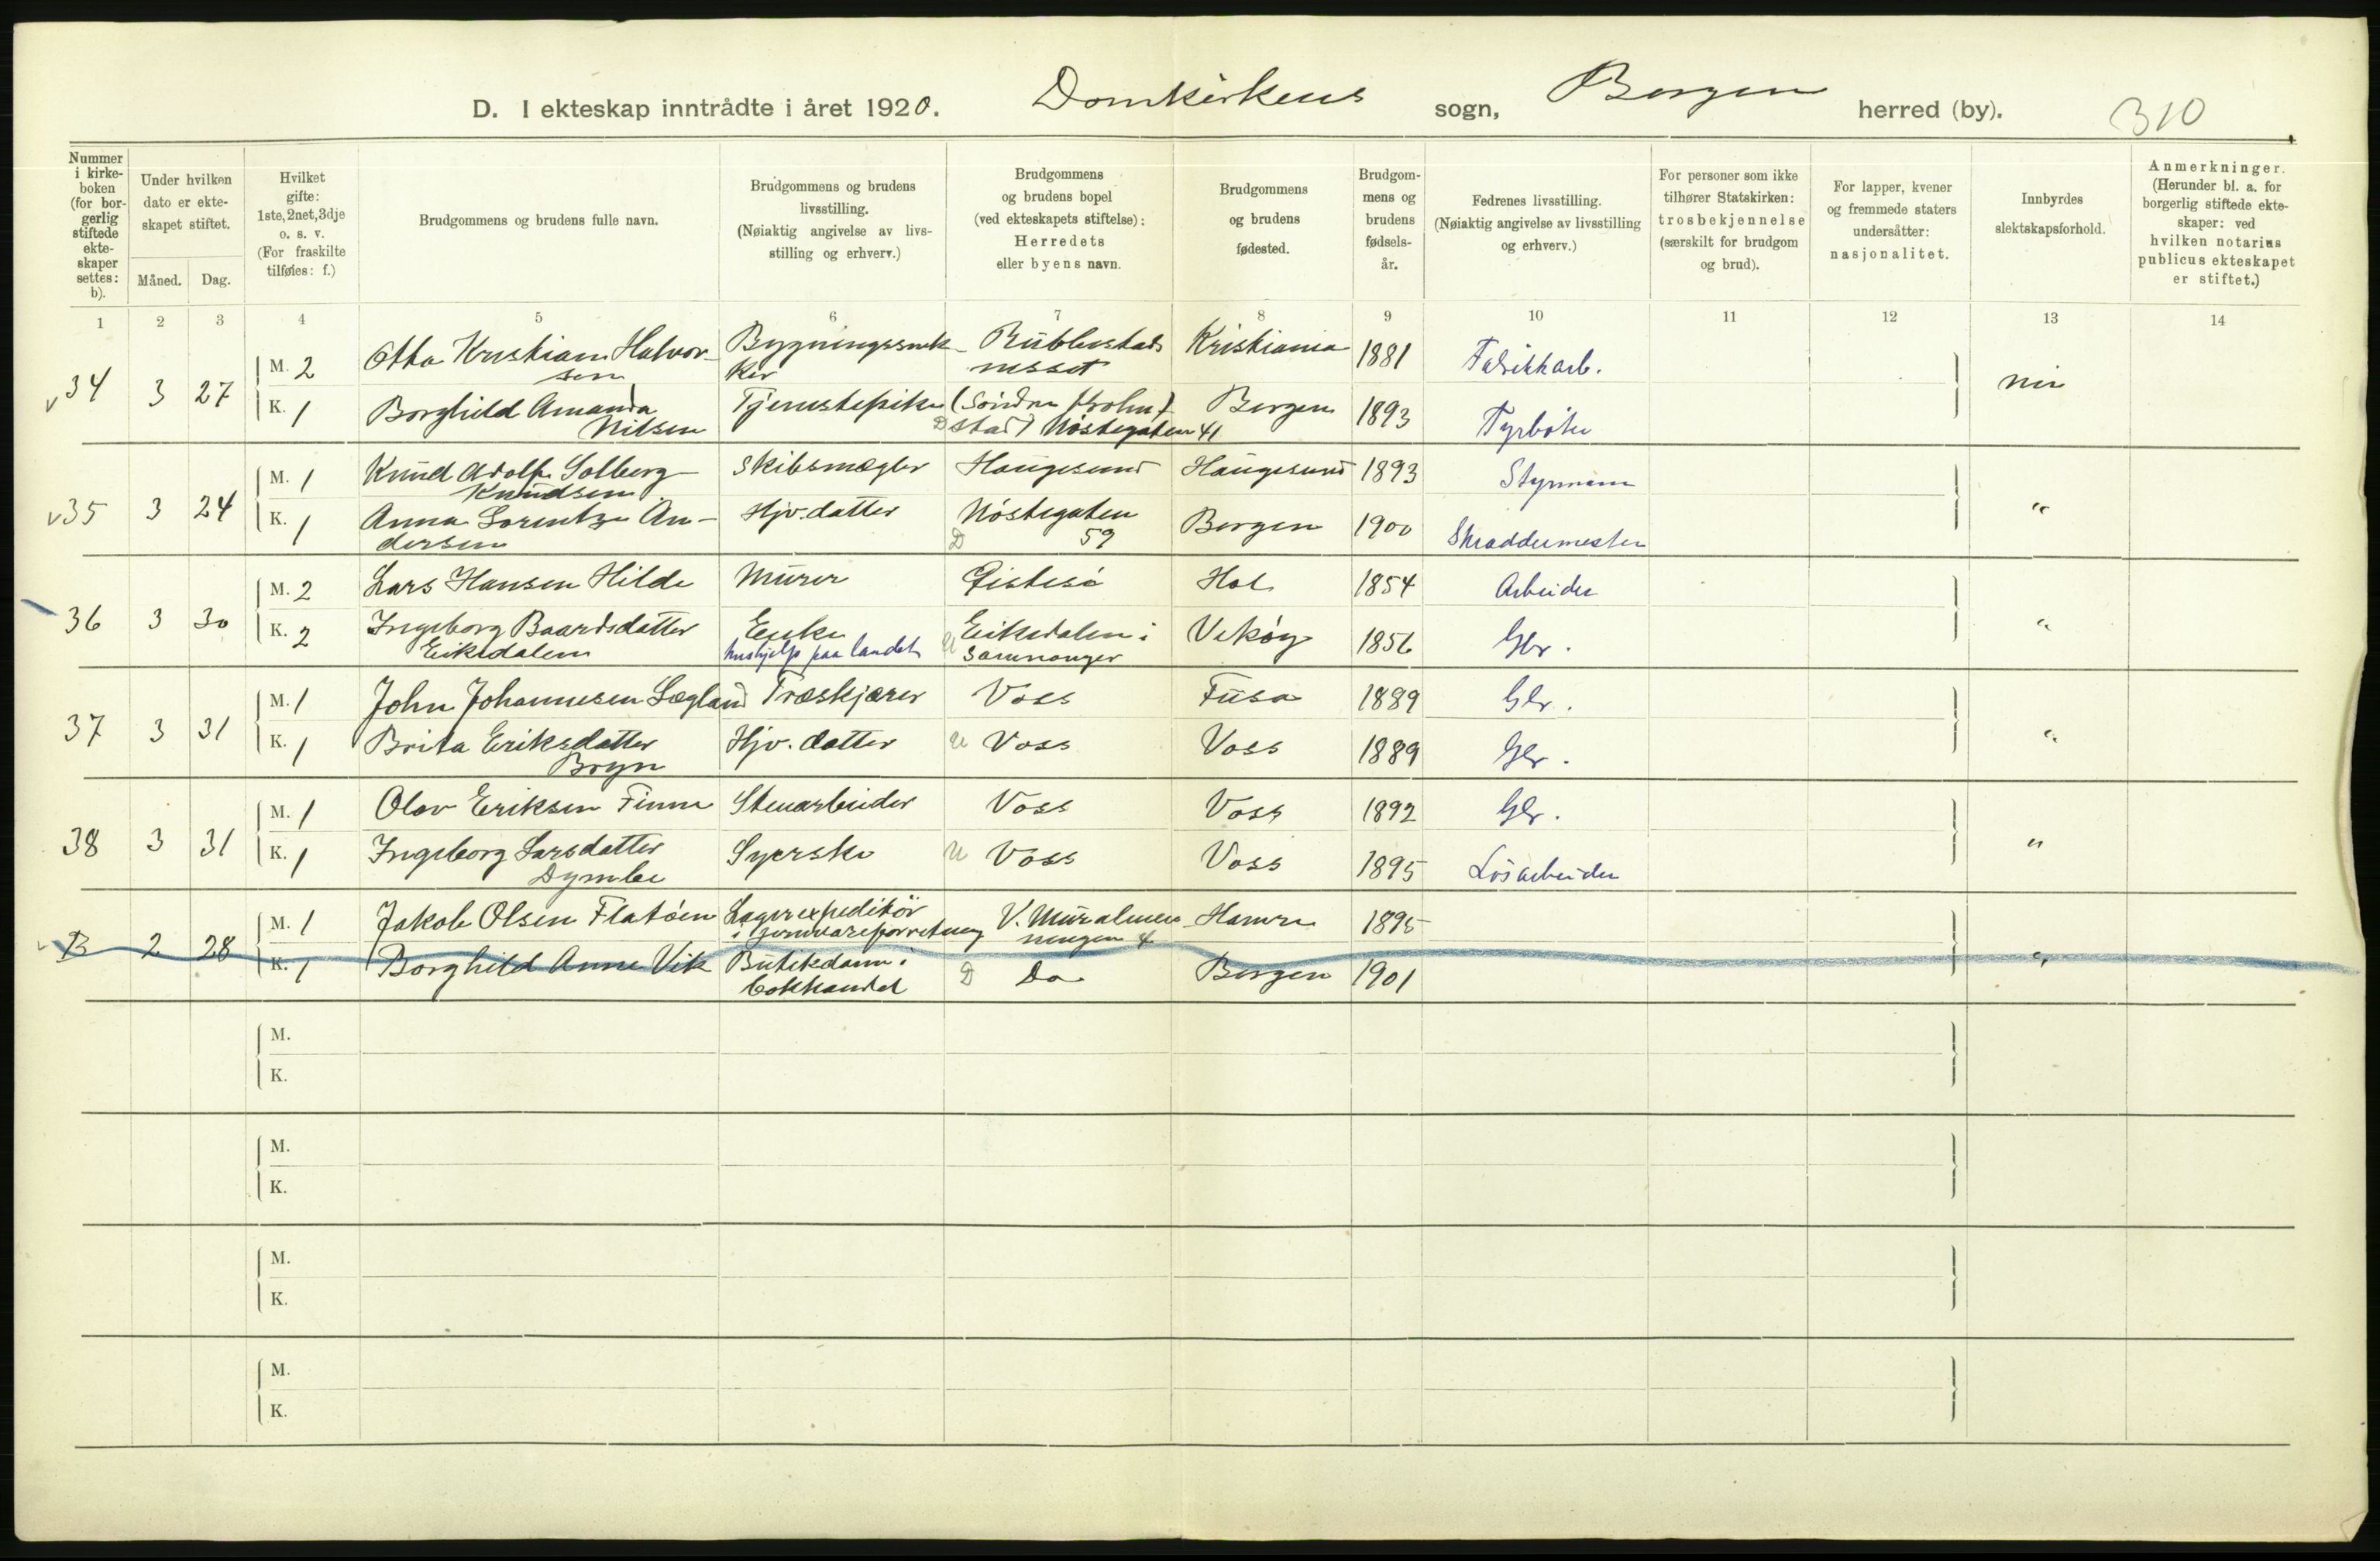 D. I ekteskap inntrådte i året 1920. Domkirkens sogn, Bergen herred (by). 310
Nummer i kirkeboken (for borgerlig stiftede ekteskaper settes: b).
Under hvilken dato er ekteskapet stiftet.
Måned. Dag.
Hvilket gifte: 1ste, 2net, 3dje o. s. v. (For fraskilte tilføies: f.)
Brudgommens og brudens fulle navn.
Brudgommens og brudens livsstilling. (Nøiaktig angivelse av livsstilling og erhverv.)
Brudgommens og brudens bopel (ved ekteskapets stiftelse): Herredets eller byens navn.
Brudgommens og brudens fødested.
Brudgommens og brudens fødselsår.
Fedrenes livsstilling. (Nøiaktig angivelse av livsstilling og erhverv.)
For personer som ikke tilhører Statskirken: trosbekjennelse (særskilt for brudgom og brud).
For lapper, kvener og fremmede staters undersåtter: nasjonalitet.
Innbyrdes slektskapsforhold.
Anmerkninger. (Herunder bl. a. for borgerlig stiftede ekteskaper: ved hvilken notarius publicus ekteskapet er stiftet.)
1 2 3 4 5 6 7 8 9 10 11 12 13 14
v 34 3 27 M. 2 Otto Kristian Halvorsen Bygningssnekker Kristiania 1881 Fabrikkarb. nei
K. 1 Borghild Amanda Nilsen Tjenestepike D Nöstegaten 41 Bergen 1893 Fyrböter
v 35 3 24 M. 1 Knud Adolf Solberg Knudsen Skibsmægler Haugesund Haugesund 1893 Styrmann "
K. 1 Anna Lorentze Andersen Hjv. datter D Nöstegaten 59 Bergen 1900 Skraddermester
36 3 30 M. 2 Lars Hansen Hilde Murer Östesö 1854 Arbeider "
K. 2 Ingeborg Baardsdatter Eiksdalen Enke hushjelp paa landet U Eiksdalen i Samnanger Vikøy 1856 Gbr.
37 3 31 M. 1 John Johannesen Lægland Træskjærer Voss Fusa 1889 Gbr. "
K. 1 Brita Eriksdatter Bryn Hjv. datter U Voss Voss 1889 Gbr.
38 3 31 M. 1 Olav Eriksen Finne Stenarbeider Voss Voss 1892 Gbr. "
K. 1 Ingeborg Larsdatter Dymbe Syerske U Voss Voss 1895 Lösarbeider
v B 2 28 M. 1 Jakob Olsen Flatöen Lagerexpeditör i jernvareforretning V. Muralmenningen 4 Hamre 1895 "
K. 1 Borghild Anne Vik Butikdame i bokhandel D Do Bergen 1901
M.
K.
M.
K.
M.
K.
M.
K.